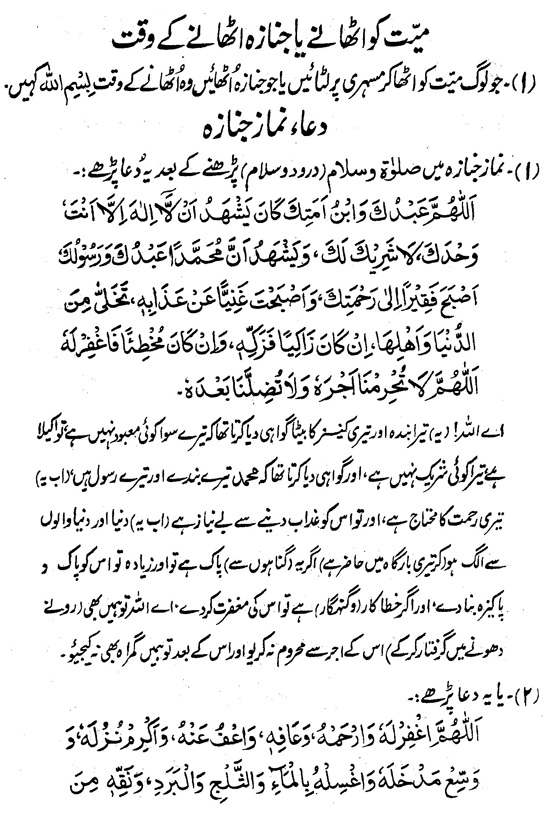 میّت کو اٹھانے یا جنازہ اٹھانے کے وقت
(۱)۔ جو لوگ میّت کو اٹھا کر مسہری پر لٹائیں یا جو جنازہ اُٹھائیں وہ اُٹھانے کے وقت بِسْمِ اللہ کہیں۔
دعاء نماز جنازہ
(۱)۔ نماز جنازہ میں صلوٰۃ وسلام (درود و سلام) پڑھنے کے بعد یہ دُعا پڑھے :۔
اَللّٰهُمَّ عَبْدُكَ وَابْنُ اَمَتِكَ كَانَ يَشْهَدُ اَنْ لَّآ اِلٰهَ اِلَّا اَنْتَ
وَحْدَكَ، لَا شَرِيْكَ لَكَ، وَيَشْهَدُ اَنَّ مُحَمَّدًا عَبْدُكَ وَرَسُوْلُكَ
اَصْبَحَ فَقِيْرًا اِلٰى رَحْمَتِكَ، وَاَصْبَحْتَ غَنِيًّا عَنْ عَذَابِهٖ، تَخَلّٰى مِنَ
الدُّنْيَا وَاَهْلِهَا، اِنْ كَانَ زَاكِيًا فَزَكِّهٖ، وَاِنْ كَانَ مُخْطِئًا فَاغْفِرْ لَهٗ
اَللّٰهُمَّ لَا تُحْرِمْنَا اَجْرَهٗ وَلَا تُضِلَّنَا بَعْدَهٗ۔
اے اللہ! (یہ) تیرا بندہ اور تیری کنیز کا بیٹا گواہی دیا کرتا تھا کہ تیرے سوا کوئی معبود نہیں ہے تو اکیلا
ہے تیرا کوئی شریک نہیں ہے، اور گواہی دیا کرتا تھا کہ محمد تیرے بندے اور تیرے رسول ہیں، (اب یہ)
تیری رحمت کا محتاج ہے، اور تو اس کو عذاب دینے سے بے نیاز ہے (اب یہ) دنیا اور دنیا والوں
سے الگ ہو (کر تیری بارگاہ میں حاضر ہے) اگر یہ (گناہوں سے) پاک ہے تو اور زیادہ تو اس کو پاک و
پاکیزہ بنا دے، اور اگر خطا کار (و گنہگار) ہے تو اس کی مغفرت کر دے، اے اللہ تو ہمیں بھی (رونے
دھونے میں گرفتار کر کے) اس کے اجر سے محروم نہ کریو اور اس کے بعد تو ہمیں گمراہ بھی نہ کیجیئو۔
(۲)۔ یا یہ دعا پڑھے :۔
اَللّٰهُمَّ اغْفِرْ لَهٗ وَارْحَمْهُ، وَعَافِهٖ، وَاعْفُ عَنْهُ، وَاَكْرِمْ نُزُلَهٗ، وَ
وَسِّعْ مَدْخَلَهٗ وَاغْسِلْهُ بِالْمَآءِ وَالثَّلْجِ وَالْبَرَدِ، وَنَقِّهٖ مِنَ